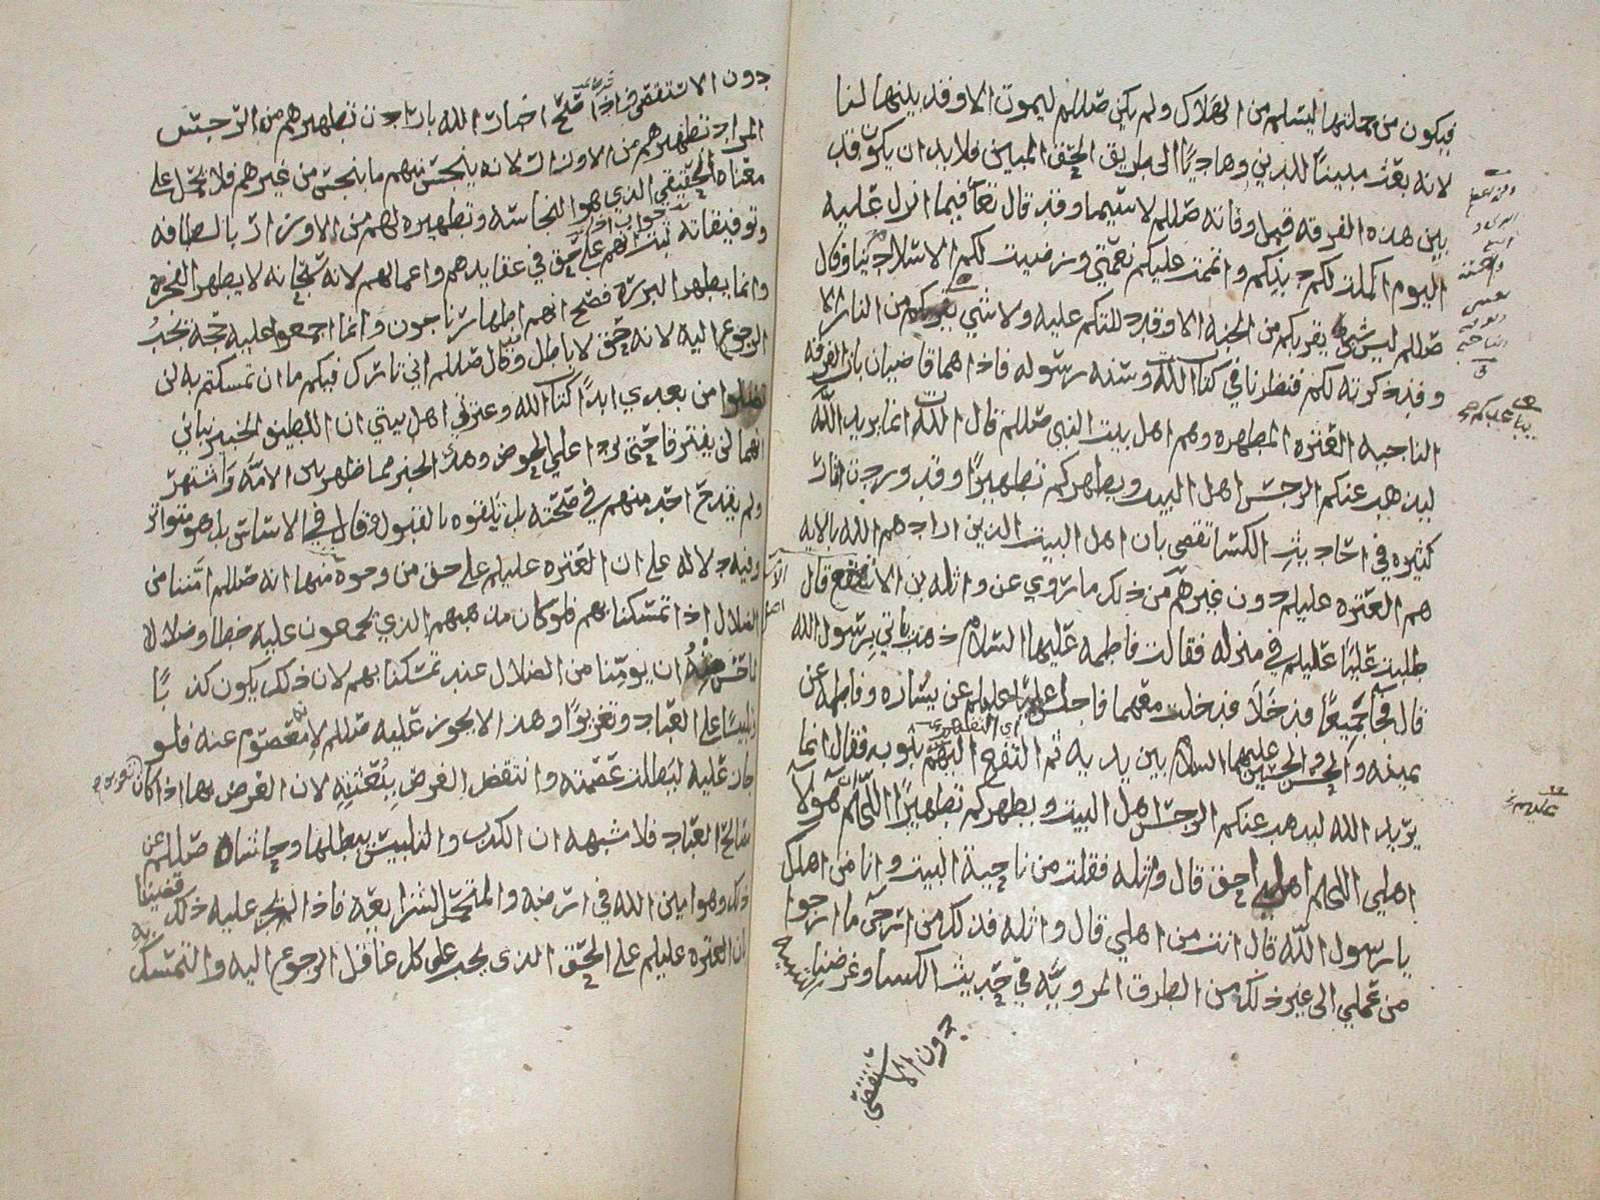 فيكون من جملتها ليسلم من الهلاك ولم يكن صللم ليموت الا وقد بينها لنا
لانه بعث مبينا للدين وهاديا الى طريق الحق المبين فلا بد ان يكون قد
بين هذه الفرقه قبل وفاته صللم لا سيما وقد قال تعا فيما انزل عليه
اليوم اكملت لكم دينكم واتممت عليكم نعمتي ورضيت لكم الاسلام دينا وقال
صللم ليس شي يقربكم من الجنه الا وقد دللتكم عليه ولا شي يقربكم من النار الا
وقد ذكرته لكم فنظرنا في كتاب الله وسنه رسوله فاذا هما قاضيان بان الفرقه
الناجيه العتره المطهره وهم اهل بيت النبي صللم قال الله انما يريد الله
ليذهب عنكم الرجس اهل البيت ويطهركم تطهيرا وقد وردت اثار
كثيره في احاديث الكسا تقضي بان اهل البيت الذين ارادهم الله بالايه
هم العتره عليلم دون غيرهم من ذلك ما روي عن واثله بن الاسقع قال
طلبت عليا عليلم في منزله فقالت فاطمه عليها السلام ذهب ياتي برسول الله
قال فجآ جميعا فدخلا فدخلت معهما فاجلس عليا عليلم عن يساره وفاطمه عن
يمينه والحسن والحسين عليهما السلام بين يديه ثم التفع اليهم بثوبه فقال انما
يريد الله ليذهب عنكم الرجس اهل البيت ويطهركم تطهيرا اللهم هولا
اهلي اللهم اهلي احق قال واثله فقلت من ناحية البيت وانا من اهلك
يا رسول الله قال انت من اهلي قال واثله فذلك من ارجى ما ارجوا
من عملي الى غير ذلك من الطرق المرويه في حديث الكسا وغرضنا
دون الاستقصى
دون الاستقصى فاذا صح اخبار الله بارادت تطهيرهم من الرجس
المراد تطهيرهم من الاوزار لانه ينجس منهم ما ينجس من غيرهم فلا يحمل على
معناه الحقيقي الذي هوا النجاسه وتطهيره لهم من الاوزار بالطافه
وتوفيقاته ثبت انهم على حق في عقايدهم واعمالهم لانه سبحانه لا يطهر الفجره
وانما يطهر البرره فصح انهم اطهار ناجون وانما اجمعوا عليه حجة يجب
الرجوع اليه لانه حق لا باطل وقال صللم اني تارك فيكم ما ان تمسكتم به لن
تضلوا من بعدي ابدا كتاب الله وعترتي اهل بيتي ان اللطيف الخبير نباني
انهما لن يفترقا حتى يردا علي الحوض وهذا الخبر مما ظهر بين الامه واشتهر
ولم يقدح احد منهم في صحته بل تلقوه بالقبول قال في الاساس بل هو متواتر
وفيه دلاله على ان العتره عليلم على حق من وجوه منها انه صللم امننا من
الضلال اذا تمسكنا بهم فلو كان مذهبهم الذي يجمعون عليه خطا وضلالا
ان يومننا من الضلال عند تمسكنا بهم لان ذلك يكون كذبا
تلبيسا على العباد وتغريرا وهذا لا يجوز عليه صللم لانه معصوم عنه فلو
جاز عليه لبطلت عصمته وانتقض الغرض ببعثته لان الغرض بها اذا كان
مصالح العباد فلا شبهه ان الكذب والتلبيس يبطلها وحاشاه صللم عن
ذلك وهو امين الله في ارضه والمتحمل لشرايعه فاذا عليه ذلك قضينا
بان العتره عليلم على الحق الذي يجب على كل عاقل الرجوع اليه والتمسك
به